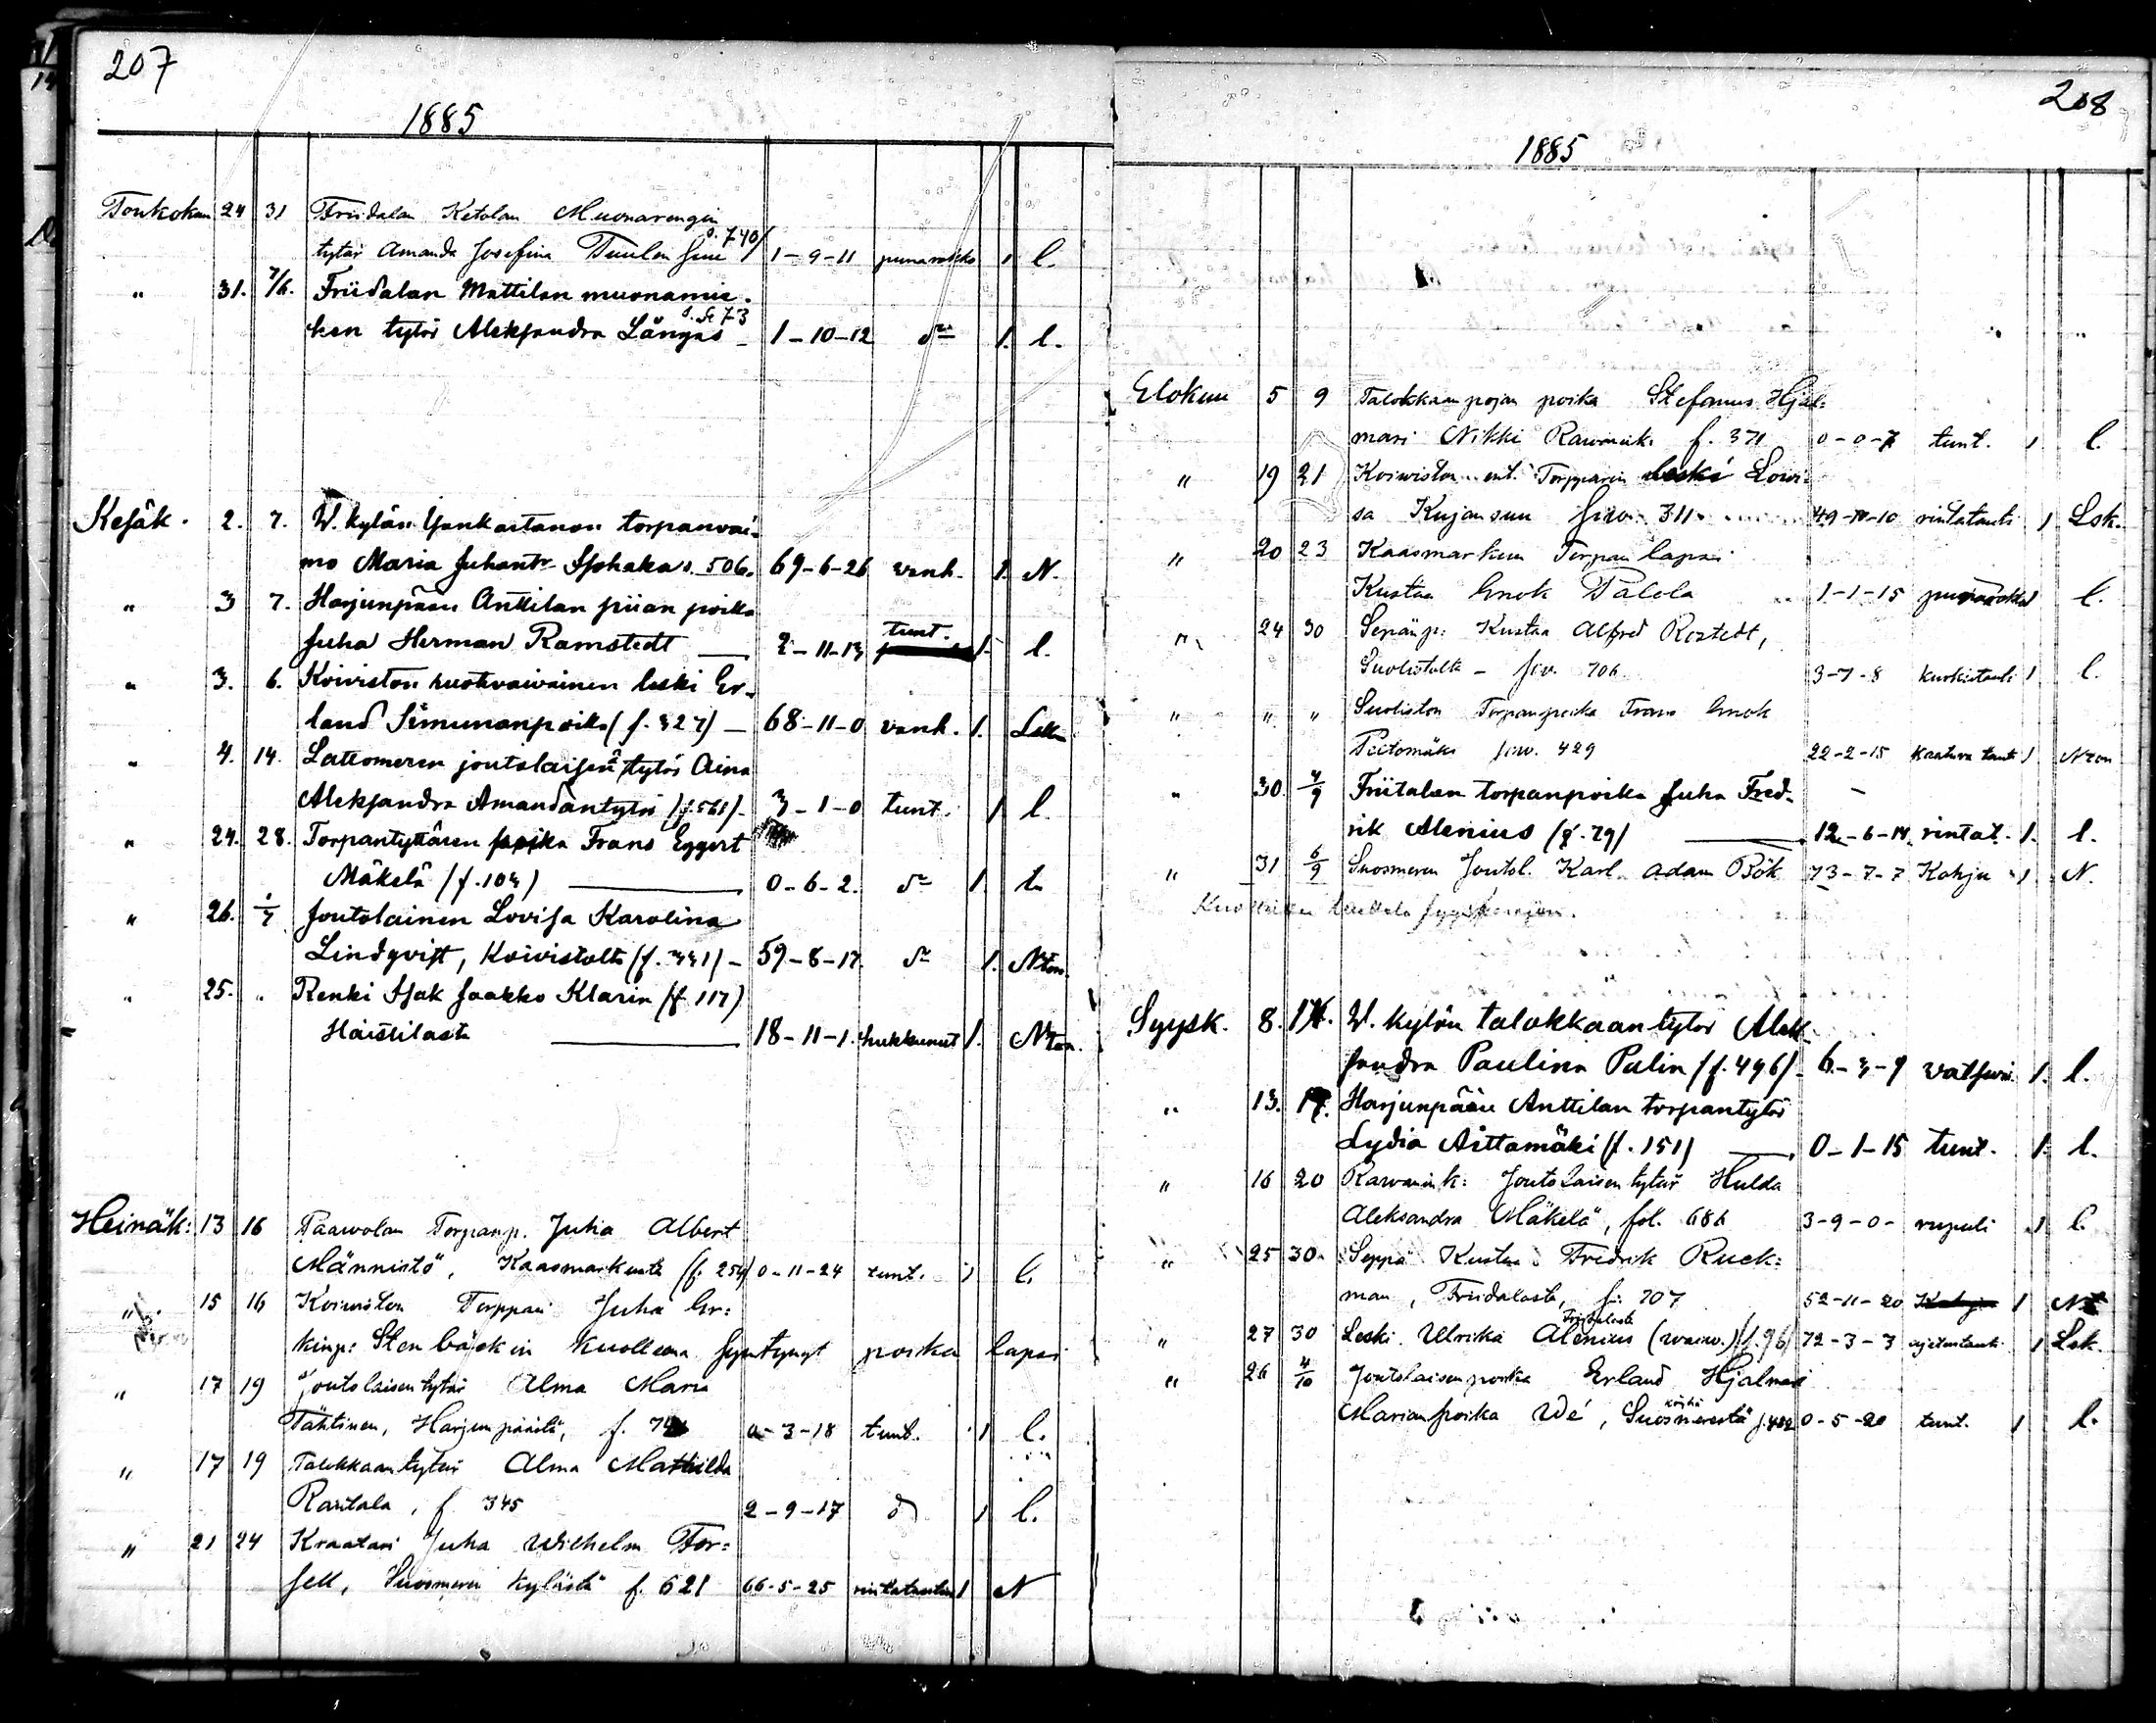 207
1885
Toukokuu 24 31 Friidalan Ketolan Muonarengin
s. 740/
tytär Amanda Josefina Tuulen 1-9-11 punarokko 1 l.
" 31. 7/6. Friidalan Mattilan muonamie-
s. 73
hen tytär Aleksandra Långas - 1-10-12 dº 1. l.
Kesäk. 2. 7. W. kylän Yonkartanon torpanvai-
mo Maria Juhantr s. 506. 69-6-26 vanh. 1. N.
" 3 7. Harjunpään Anttilan piian poika
tunt.
Juha Herman Ramstedt — 2-11-13 1. l.
" 3. 6. Koiviston ruotuvaivainen leski Er-
land Simunanpoika (f. 327) — 68-11-0 vanh. 1. Lsk
" 4. 14. Lattomeren joutolaisen tytär Aina
Aleksandra Amandantytär (f. 561) - 3-1-0 tunt. 1 l.
" 24. 28. Torpantyttären poika Frans Eggert
Mäkelä (f. 104) — 0-6-2. dº 1. l.
" 26. 1/7 Joutolainen Lovisa Karolina
Lindqvist, Koivistolta (f. 331) - 59-8-17. dº 1. Ntön.
" 25. " Renki Isak Jaakko Klarin (f. 117)
Haistilasta — 18-11-1. hukkunut 1. Ntön.
Heinäk: 13 16 Paawolan Torpanp. Juha Albert
Männistö, Kaasmarkusta (f. 254) 0-11-24 tunt. 1 l.
" 15 16 Koiwiston Torppari Juha Er:
kinp: Stenbäckin Kuolleena syntynyt poika lapsi
" 17 19 Joutolaisen tytär Alma Maria
Tähtinen, Harjunpäästä, f. 0-3-18 tunt. 1 l.
" 17 19 Talokkaan tytär Alma Mathilda
Rantala, f. 345 2-9-17 d 1 l.
" 21 24 Kraatari Juha Wilhelm For:
sell, Suosmeren kylästä f. 621 66-5-25 rintatauti 1 N
208
1885
Elokuu 5 9 Talokkaanpojan poika Stefanus Hjal:
mari Nikki Rawanink. f. 371 0-0-7 tunt. 1 l.
" 19 21 Koiwiston ent. Torpparin leski Lowi:
sa Kujansuu siw. 311 49-10-10 rintatauti 1 Lsk.
" 20 23 Kaasmarkun Torpan lapsi
Kustaa Enok Palola 1-1-15 punarokko l.
" 24 30 Sepänp: Kustaa Alfred Rostedt,
Suolistolta - siv. 706 3-7-8 kurkutauti 1 l.
" " " Suoliston Torpanpoika Frans Enok
Peltomäki siw. 429 22-2-15 kaatuva tauti 1 Ntön
" 30. 4/9 Friitalan torpanpoika Juha Fred-
rik Alenius (f. 79) — 12-6-14. rintat. 1. l.
" 31 6/9 Suosmeren Joutol. Karl Adam Bök 73-7-7 Kohju 1. N.
Syysk. 8. 14. W. kylän talokkaan tytär Alek-
sandra Paulina Pulin (f. 496) - 6-3-9 1. l.
" 13. 17. Harjunpään Anttilan torpantytär
Lydia Aittamäki (f. 151) — 0-1-15 tunt. 1. l.
" 16 20 Rawanink: Joutolaisen tytär Hulda
Aleksandra Mäkelä, fol. 686 3-9-0- rupuli 1 l.
" 25 30. Seppä Kustaa Fredrik Ruck:
man, Friidalasta, f: 707 52-11-20 Kohju 1 N
Friidalasta
" 27 30 Leski Ulrika Alenius (waiw.) (f. 96) 72-3-3 ajetustauti 1 Lsk.
" 26 4/10 Joutolaisen poika Erland Hjalmari
Marianpoika Wè, Suosmerestä f. 482 0-5-20 tunt. 1 l.